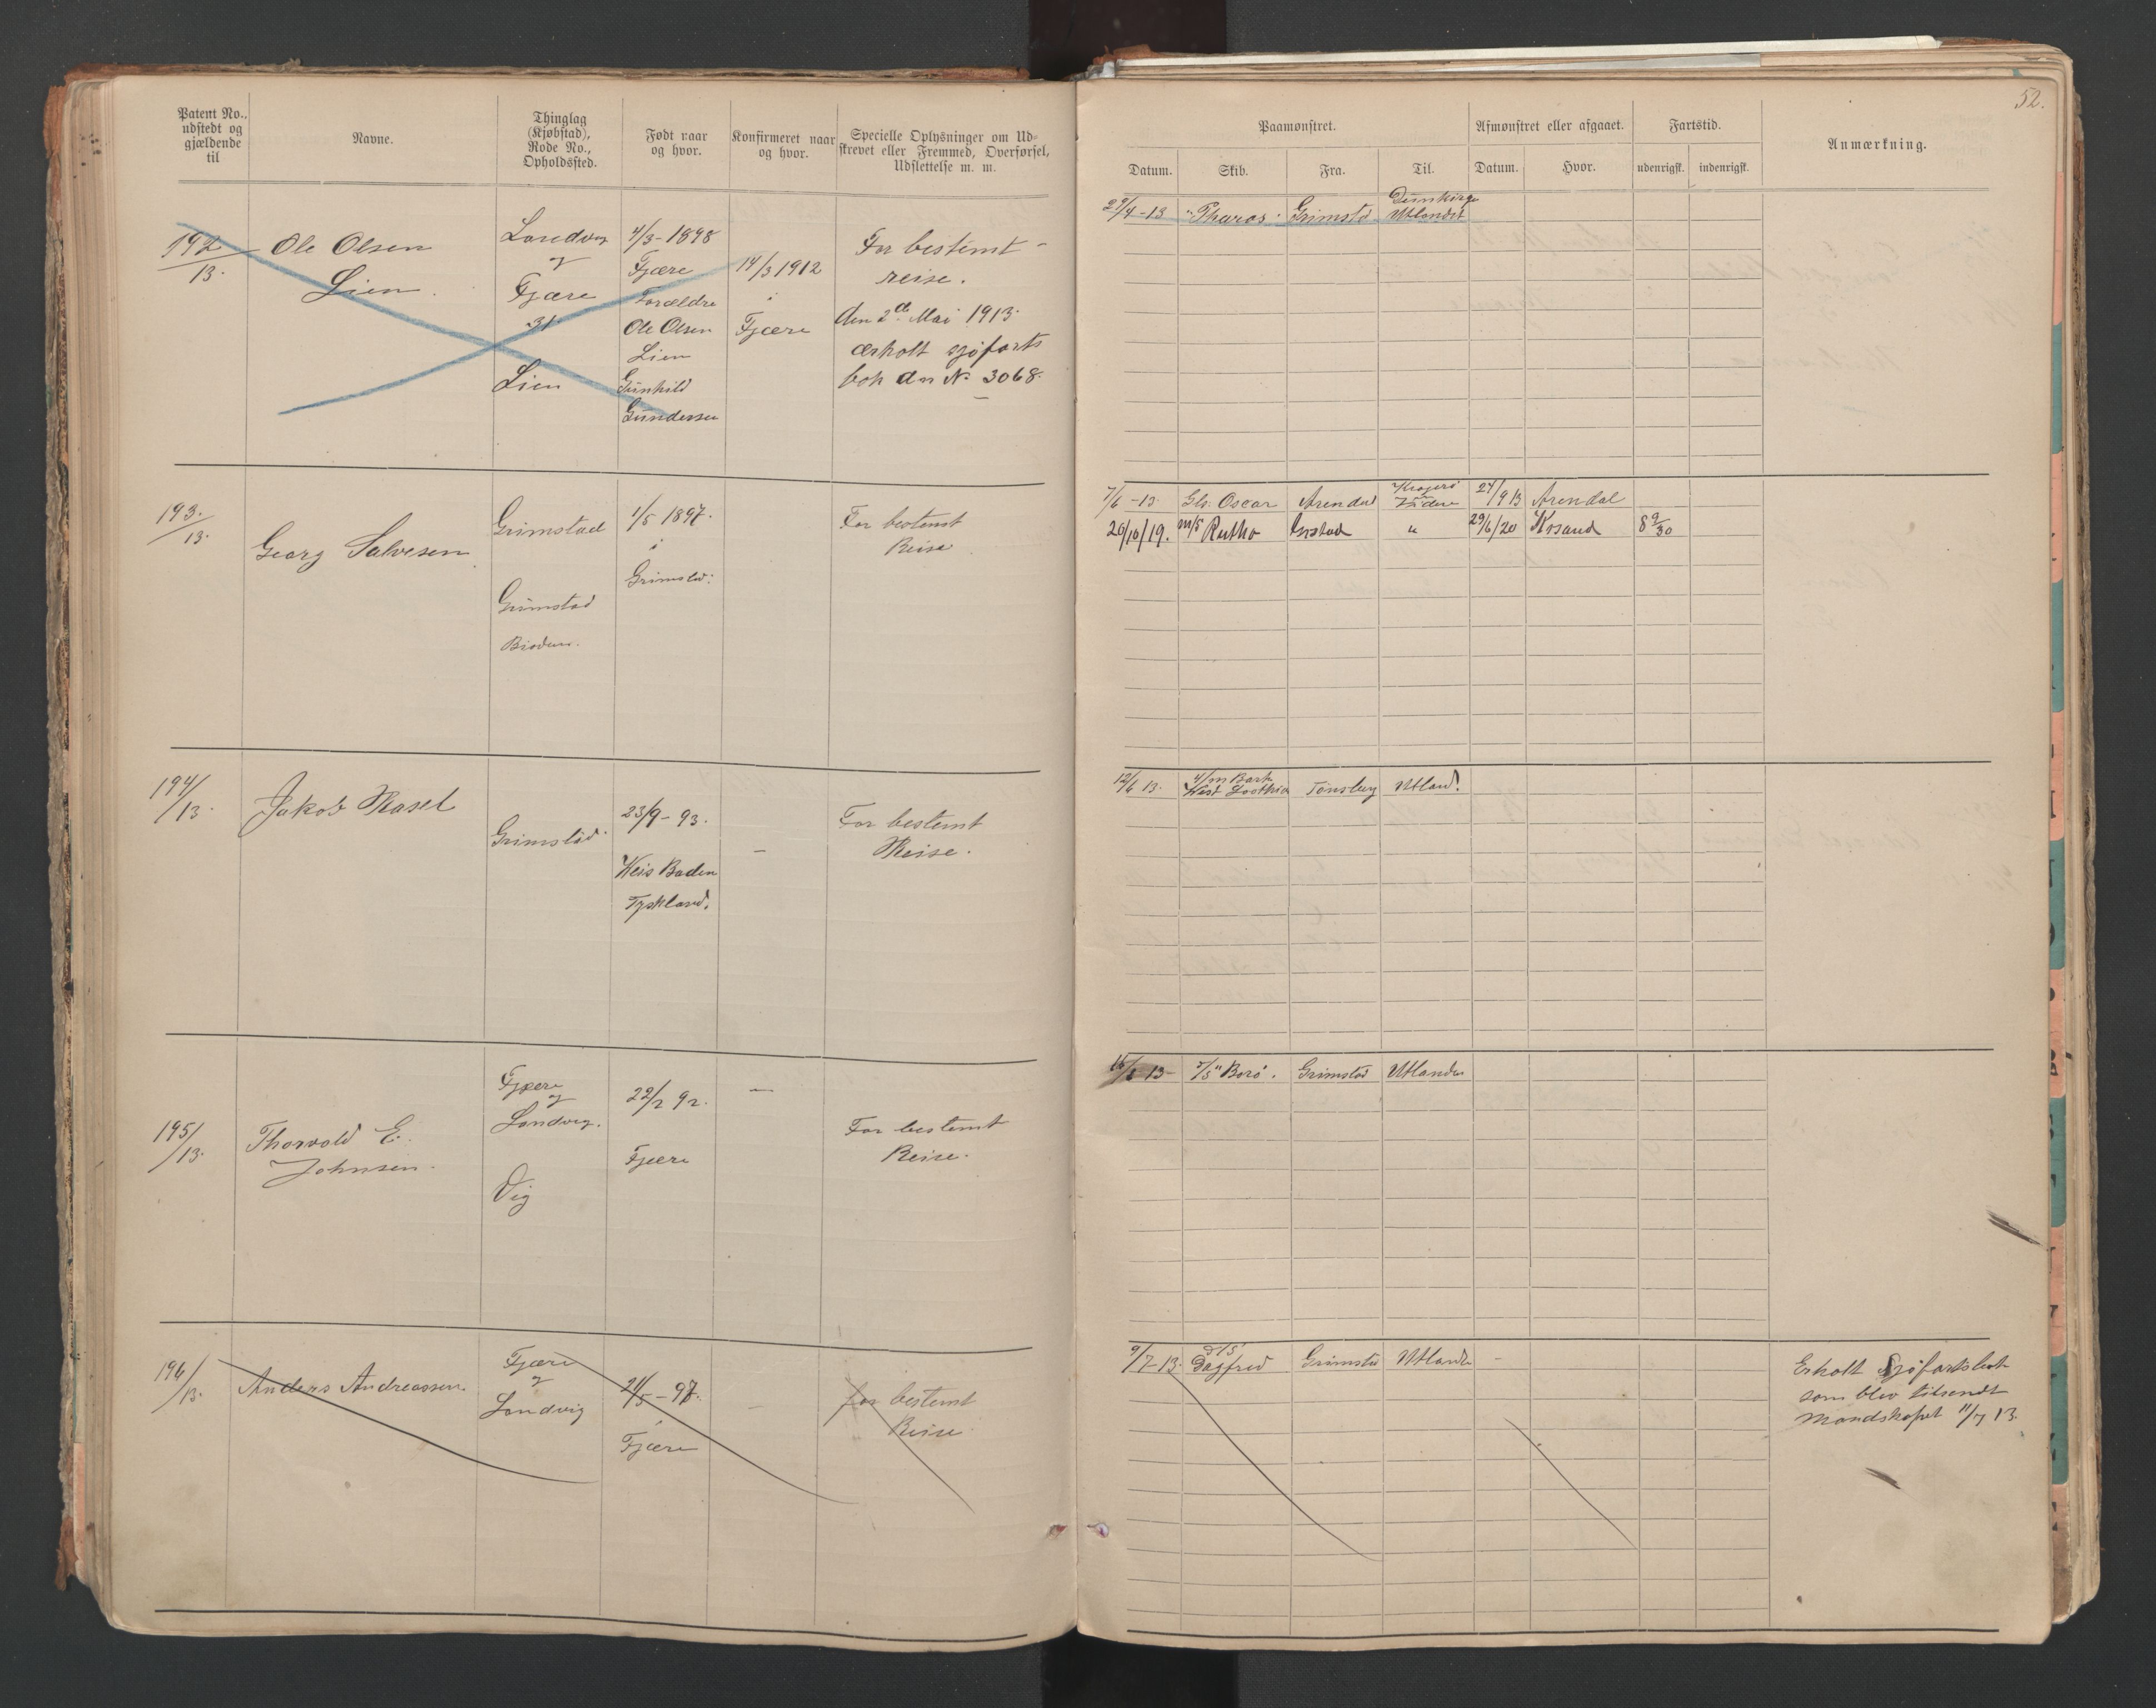 Patent No., udstedt og gjældende til
Navne.
Thinglag (Kjøbstad), Rode No., Opholdssted.
Født naar og hvor.
Konfirmeret naar og hvor.
Specielle Oplysninger om Udskrevet eller Fremmed, Overførsel, Udslettelse m. m.
192/13.
Ole Olsen
Lien.
Landvig
&
Fjære
31
Lien
4/3-1898
Fjære
Forældre
Ole Olsen
Lien
Gunhild
Gundersen
14/3 1912
i
Fjære
For bestemt
reise.
den 2de Mai 1913
erholt sjøfarts
bok an No 3068.
193./13.
Georg Salvesen
Grimstad
Grimstad
1/5 1897.
i
Grimstad.
For bestemt
Reise
194/13.
Jakob Hasel
Grimstad
23/9-93.
Weis Baden
Tyskland.
—
For bestemt
Reise.
195/13.
Thorvald E.
Johnsen.
Fjære
&
Landvig.
Vig
22/2 92.
Fjære
—
For bestemt
Reise.
196/13.
Anders Andreassen.
Fjære
&
Landvig
24/5-97.
i
Fjære
—
for bestemt
Reise.
52.
Paamønstret.
Afmønstret eller afgaaet.
Fartstid.
Anmærkning.
Datum.
Skib.
Fra.
Til.
Datum.
Hvor.
udenrigsk.
indenrigsk.
29/4-13 "Pharos" Grimstd Dunkirge
Utlandet
7/6-13 Gls. Oscar Arendal Kragerø 24/9 13 Arendal
20/10/19. m/s Rutho Grstad " 29/6/20 Krsand 8 9/30
12/6 13. 4/m Bark
Tønsberg Utland.
16/6 13 s/s "Borø". Grimstad Utlandet
9/7-13. d/s
Dagfred Grimstd Utlandet -
Erholt Sjøfartsbok
som blev tilsendt
Mandskapet 11/7 13.